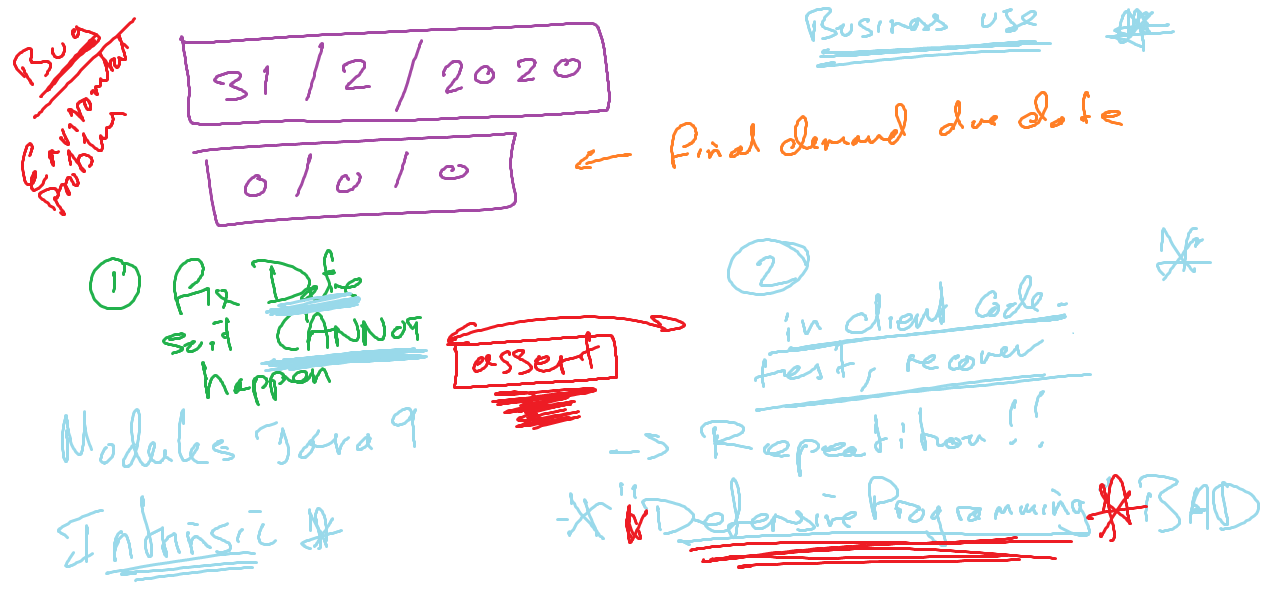 Bug
Environmental
problem
31/2/2020
0/0/0
Business use
← final demand due date
1 fix Date
so it CANNOT
happen
assert
2
in client code -
test, recover
Modules Java 9
→ Repeatition!!
Intrinsic *
* "Defensive Programming * BAD